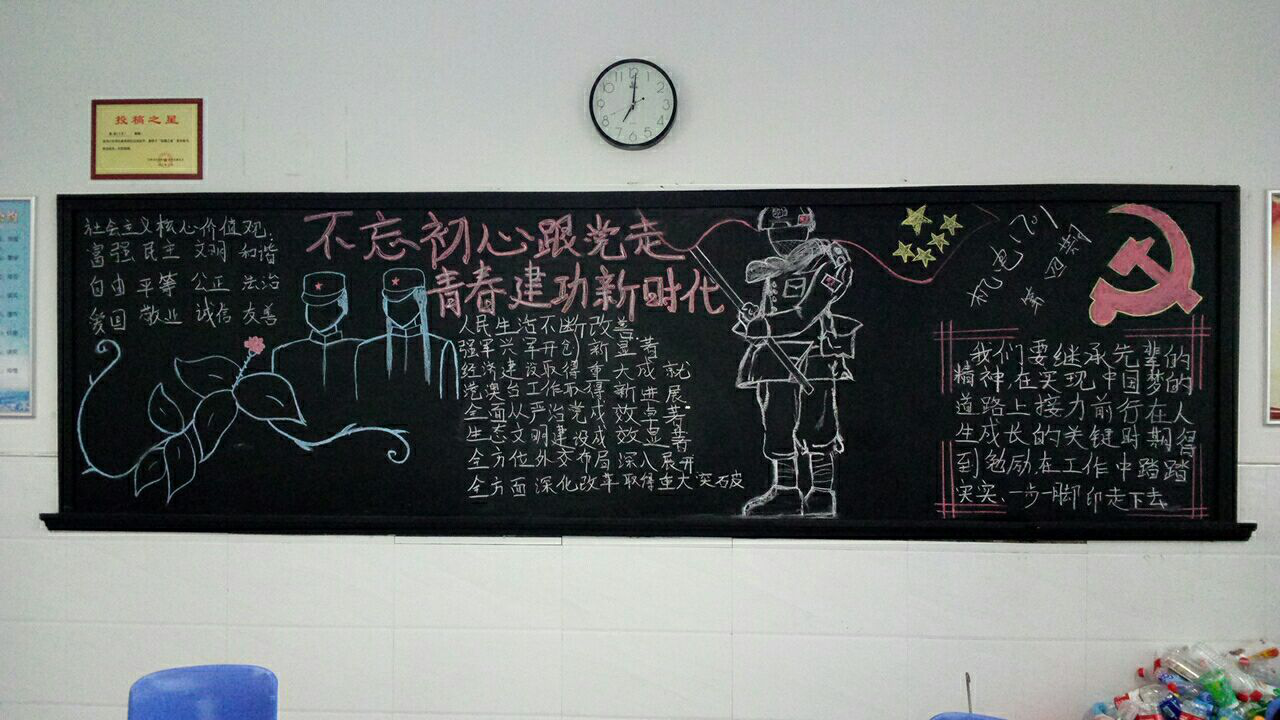 投稿之星
社会主义核心价值观
富强 民主 文明 和谐
自由 平等 公正 法治
爱国 敬业 诚信 友善
不忘初心跟党走
青春建功新时代
人民生活不断改善
强军兴军开创新显著
经济建设取得重大成就
港澳台工作取得新进展
全面从严治党成效卓著
生态文明建设成效显著
全方位外交布局深入展开
全方面深化改革取得重大突破
机电1701
第四期
我们要继承先辈的
精神,在实现中国梦的
道路上接力前行在人
生成长的关键时期得
到勉励,在工作中踏踏
实实、一步一脚印走下去
12
1
2
3
4
5
6
7
8
9
10
11